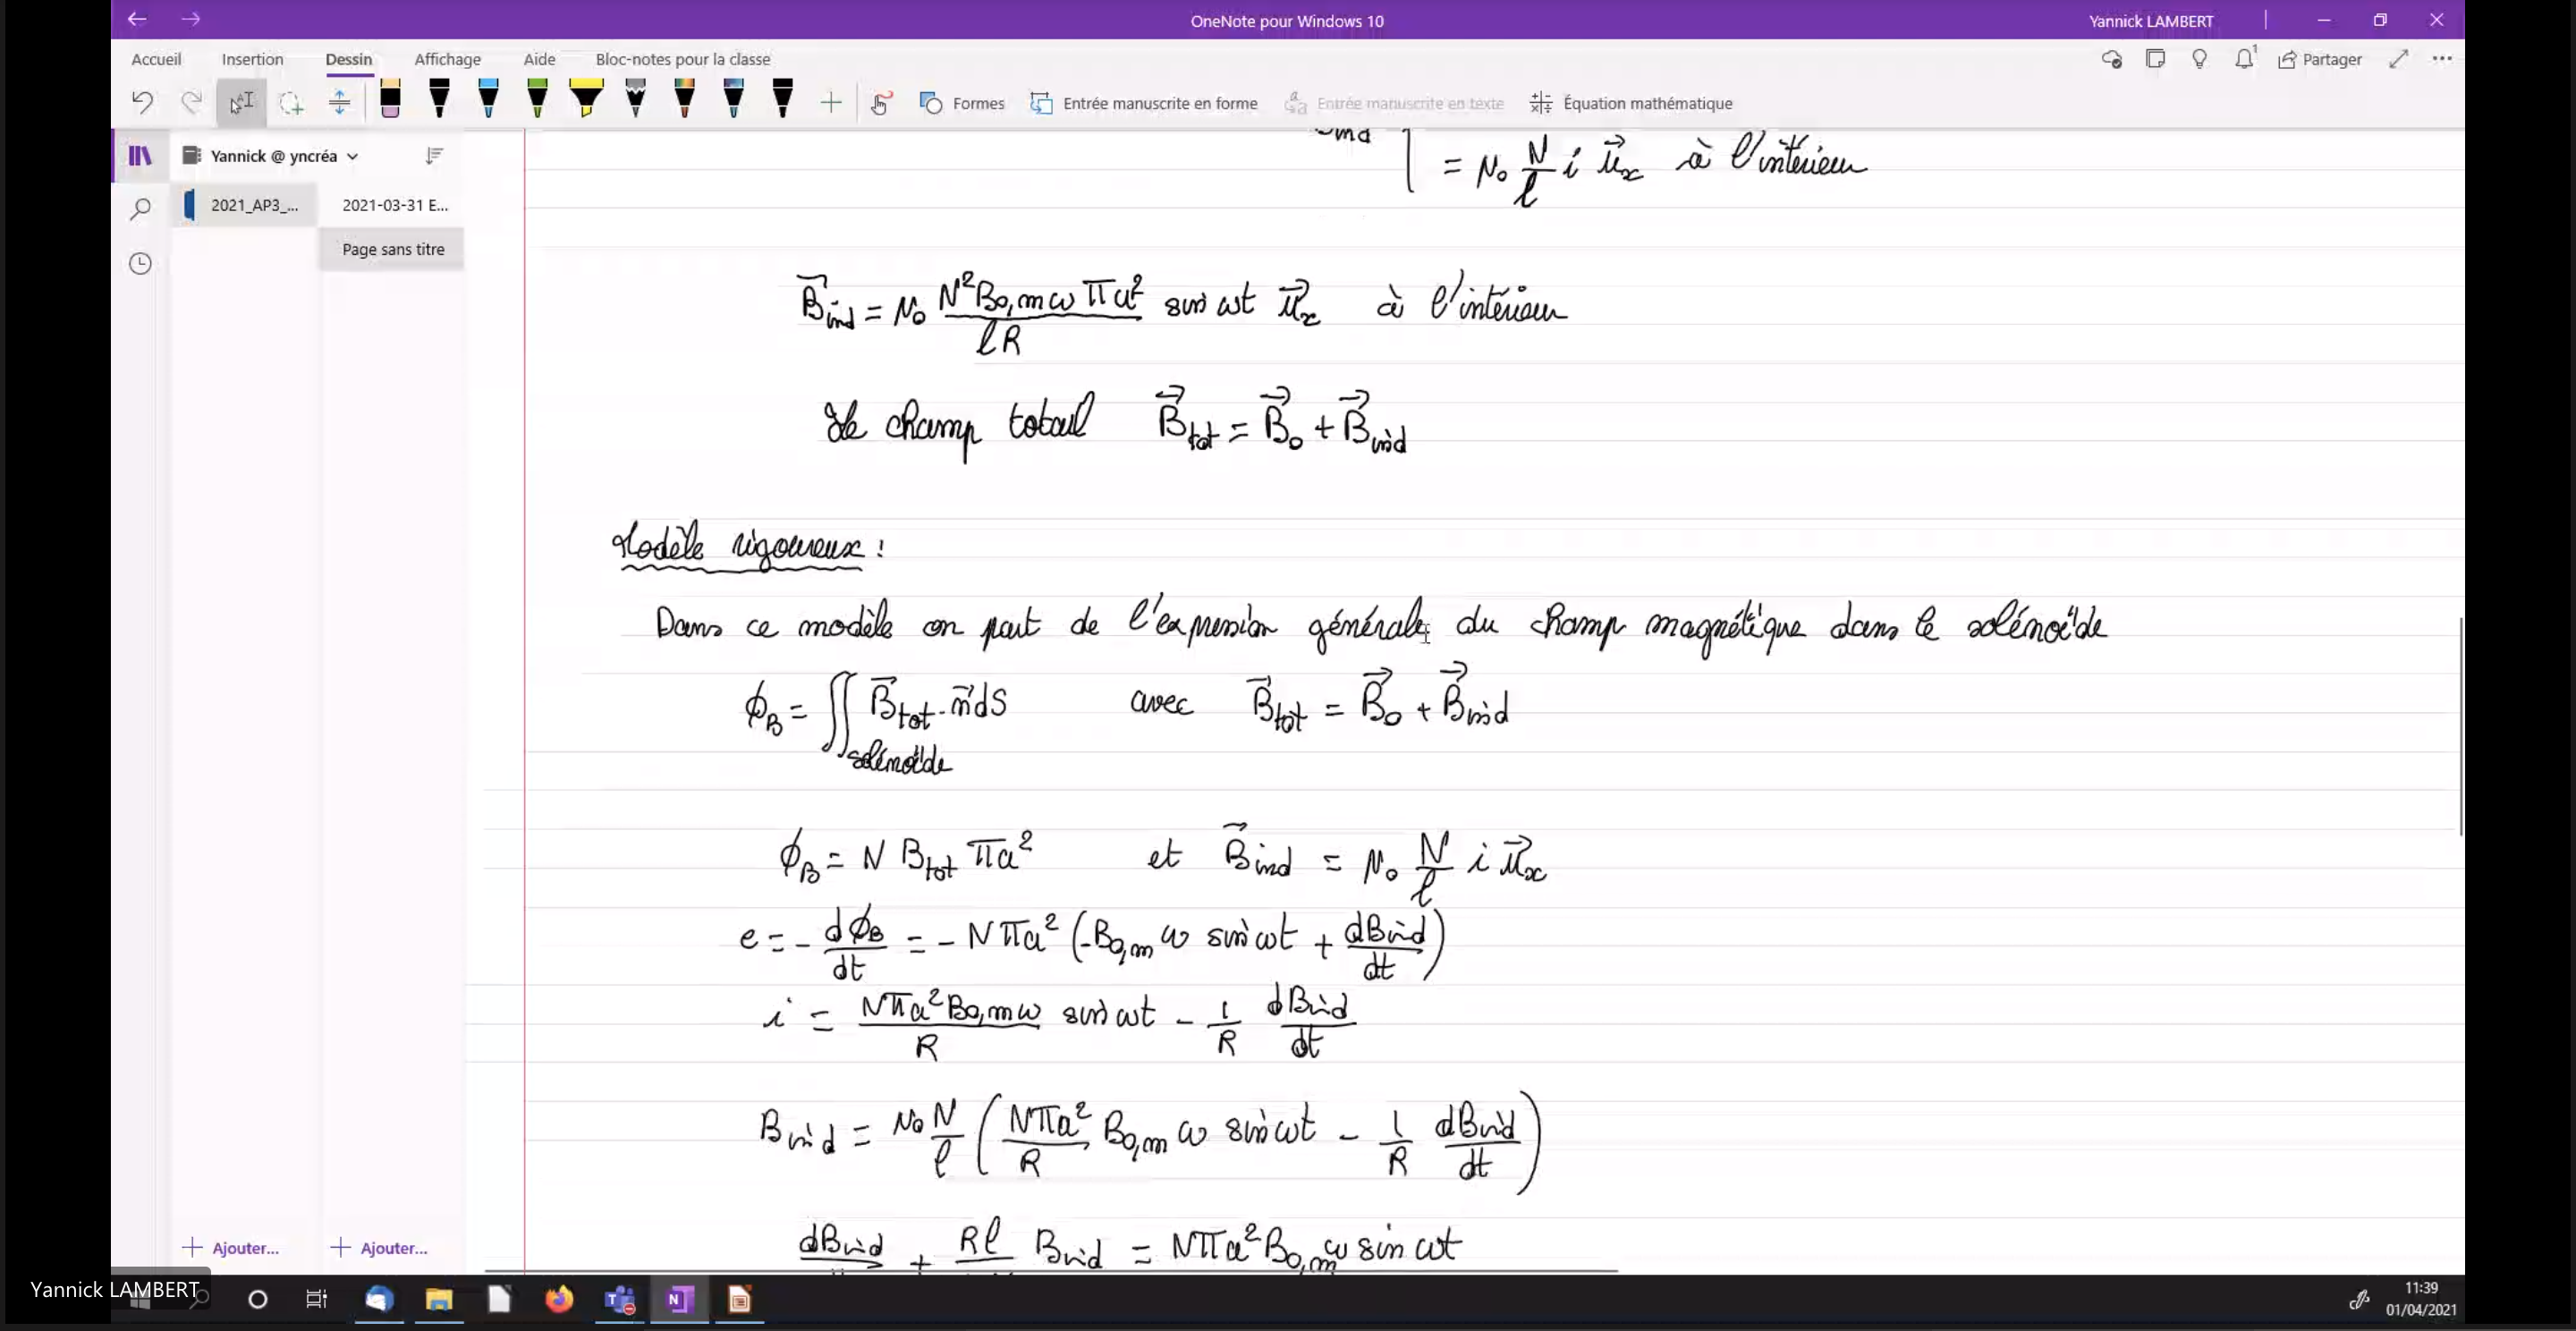 OneNote pour Windows 10
Yannick LAMBERT
Accueil Insertion Dessin Affichage Aide Bloc-notes pour la classe
Partager
Formes Entrée manuscrite en forme Entrée manuscrite en texte Équation mathématique
Yannick @ yncréa
2021_AP3_... 2021-03-31 E...
Page sans titre
= μ₀ N/l i u⃗x à l'intérieur
B⃗ind = μ₀ N²B0,m ω πa²/lR sin ωt u⃗x à l'intérieur
Le champ total B⃗tot = B⃗0 + B⃗ind
Modèle rigoureux :
Dans ce modèle on part de l'expression générale du champ magnétique dans le solénoïde
ϕB = ∬solénoïde B⃗tot · n⃗ dS avec B⃗tot = B⃗0 + B⃗ind
ϕB = N Btot πa² et B⃗ind = μ₀ N/l i u⃗x
e = - dϕB/dt = - Nπa² (-B0,m ω sin ωt + dBind/dt)
i = Nπa²B0,m ω/R sin ωt - 1/R dBind/dt
Bind = μ₀N/l (Nπa²/R B0,m ω sin ωt - 1/R dBind/dt)
dBind + Rl Bind = Nπa²B0,m ω sin ωt
Ajouter... Ajouter...
Yannick LAMBERT
11:39
01/04/2021